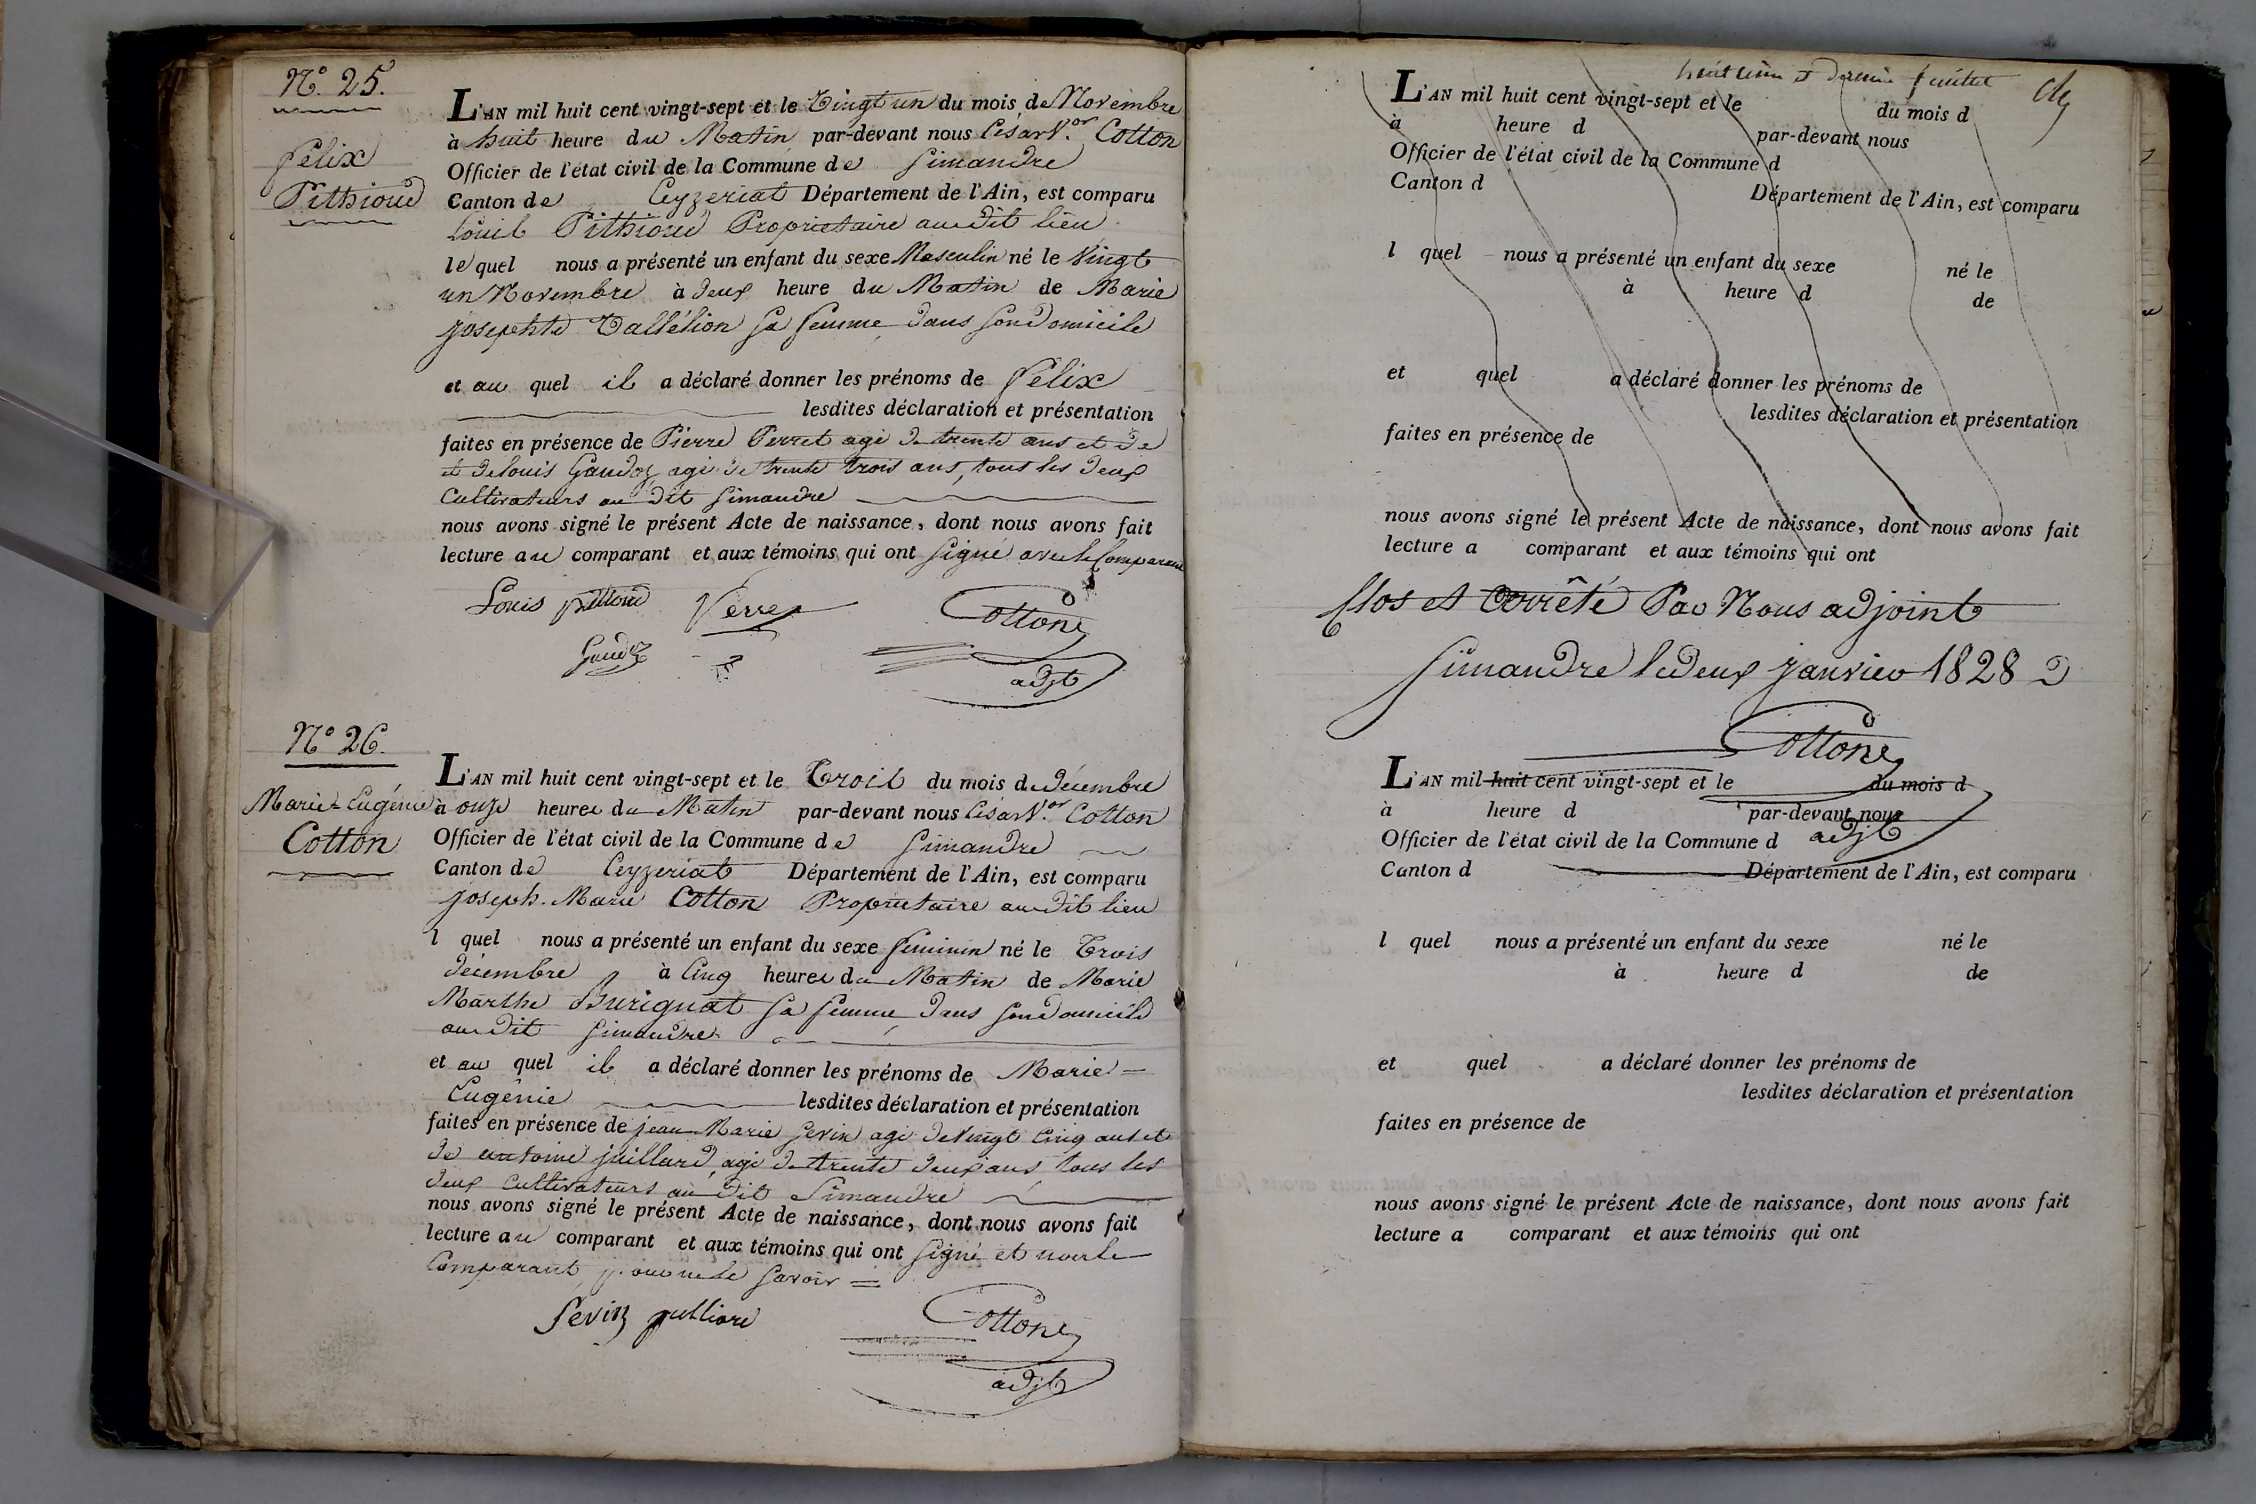 N.° 25.
Félix
Pithioud
L'AN mil huit cent vingt-sept et le Vingt un du mois de Novembre
à huit heure du Matin par-devant nous César V.or Cotton
Officier de l'état civil de la Commune de Simandre
Canton de Ceyzeriat Département de l'Ain, est comparu
Louis Pithioud Propriétaire au dit lieu
le quel nous a présenté un enfant du sexe Masculin né le Vingt
un Novembre à deux heure du Matin de Marie
josephte sa femme dans son domicile
et au quel il a déclaré donner les prénoms de Félix
lesdites déclaration et présentation
faites en présence de Pierre Perret agé de trente ans et de
et de louis Gaudoz agé de trente trois ans, tous les deux
Cultivateurs au dit Simandre
nous avons signé le présent Acte de naissance, dont nous avons fait
lecture au comparant et aux témoins qui ont signé avec le Comparant
Louis
Cotton
adjt
N° 26.
Marie-Eugénie
Cotton
L'AN mil huit cent vingt-sept et le Trois du mois de décembre
à onze heures du Matin par-devant nous César V.or Cotton
Officier de l'état civil de la Commune de Simandre
Canton de Ceyzeriat Département de l'Ain, est comparu
joseph-Marie Cotton Propriétaire au dit lieu
l quel nous a présenté un enfant du sexe feminin né le Trois
décembre à Cinq heures du Matin de Marie
Marthe Burignat sa femme dans son domicile
au dit Simandre
et au quel il a déclaré donner les prénoms de Marie=
Eugénie lesdites déclaration et présentation
faites en présence de jean-Marie Sevin agé de Vingt Cinq ans et
de antoine juillard, agé de trente deux ans, tous les
deux Cultivateurs au dit Simandre
nous avons signé le présent Acte de naissance, dont nous avons fait
lecture au comparant et aux témoins qui ont signé et non le
Comparant pour ne le savoir =
Sevin
Cotton
adjt
huitième et dernier feuillet
L'AN mil huit cent vingt-sept et le du mois d
à heure d par-devant nous
Officier de l'état civil de la Commune d
Canton d Département de l'Ain, est comparu
l quel nous a présenté un enfant du sexe né le
à heure d de
et quel a déclaré donner les prénoms de
lesdites déclaration et présentation
faites en présence de
nous avons signé le présent Acte de naissance, dont nous avons fait
lecture a comparant et aux témoins qui ont
Clos et arrêté Par Nous adjoint
Simandre le deux janvier 1828
Cotton
adjt
L'AN mil huit cent vingt-sept et le du mois d
à heure d par-devant nous
Officier de l'état civil de la Commune d
Canton d Département de l'Ain, est comparu
l quel nous a présenté un enfant du sexe né le
à heure d de
et quel a déclaré donner les prénoms de
lesdites déclaration et présentation
faites en présence de
nous avons signé le présent Acte de naissance, dont nous avons fait
lecture a comparant et aux témoins qui ont